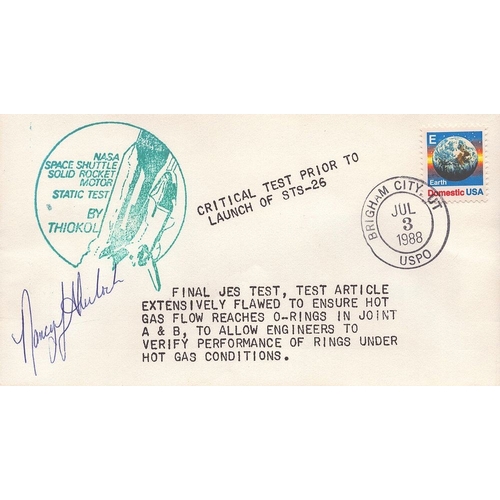 NASA
SPACE SHUTTLE
SOLID ROCKET
MOTOR
STATIC TEST
BY
THIOKOL
CRITICAL TEST PRIOR TO
LAUNCH OF STS-26
E
Earth
Domestic USA
BRIGHAM CITY, UT
JUL
3
1988
USPO
FINAL JES TEST, TEST ARTICLE
EXTENSIVELY FLAWED TO ENSURE HOT
GAS FLOW REACHES O-RINGS IN JOINT
A & B, TO ALLOW ENGINEERS TO
VERIFY PERFORMANCE OF RINGS UNDER
HOT GAS CONDITIONS.
Nancy